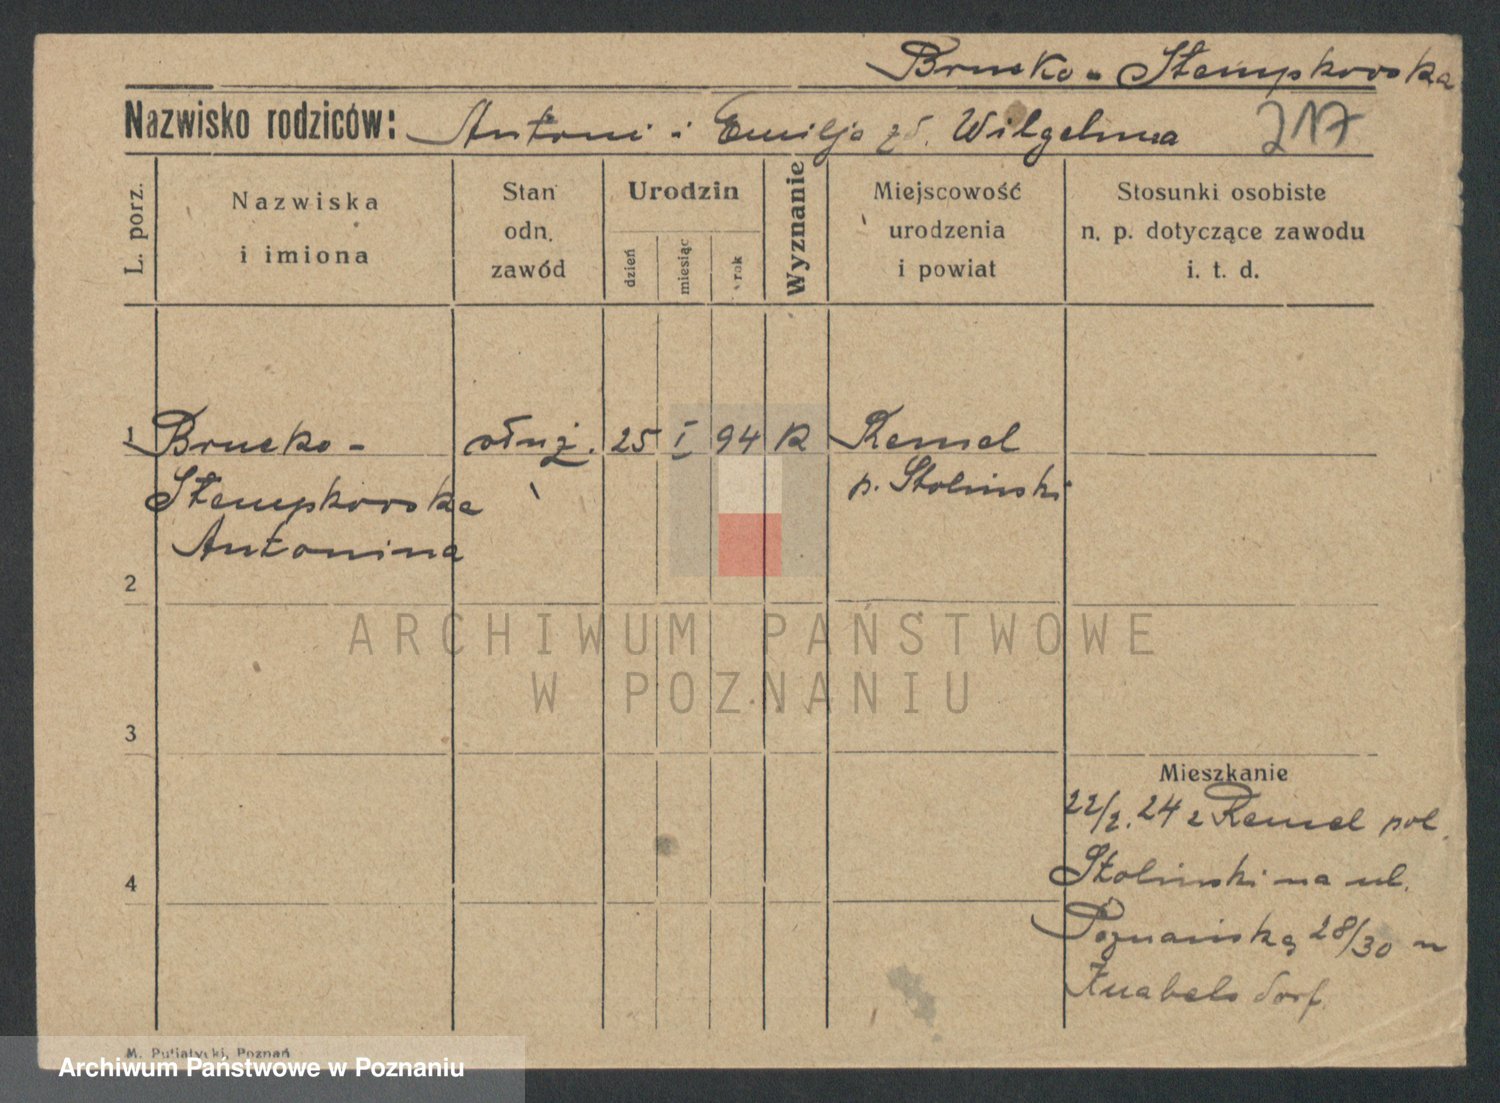 Brucko - Stempkowska
Nazwisko rodziców: Antoni i Emilja zd. Wilgelma 217
L. porz.
Nazwiska
i imiona
Stan
odn.
zawód
Urodzin
dzień
miesiąc
rok
Wyznanie
Miejscowość
urodzenia
i powiat
Stosunki osobiste
n. p. dotyczące zawodu
i. t. d.
1 Brucko - służ. 25 I 94 k Remel
Stempkowska p. Stoliński
Antonina
2
ARCHIWUM PAŃSTWOWE
W POZNANIU
3
Mieszkanie
22/2. 24 z Remel pol.
4
Stoliński na ul.
Poznańską 28/30 u
Knabelsdorf.
M. Putiatycki, Poznań
Archiwum Państwowe w Poznaniu